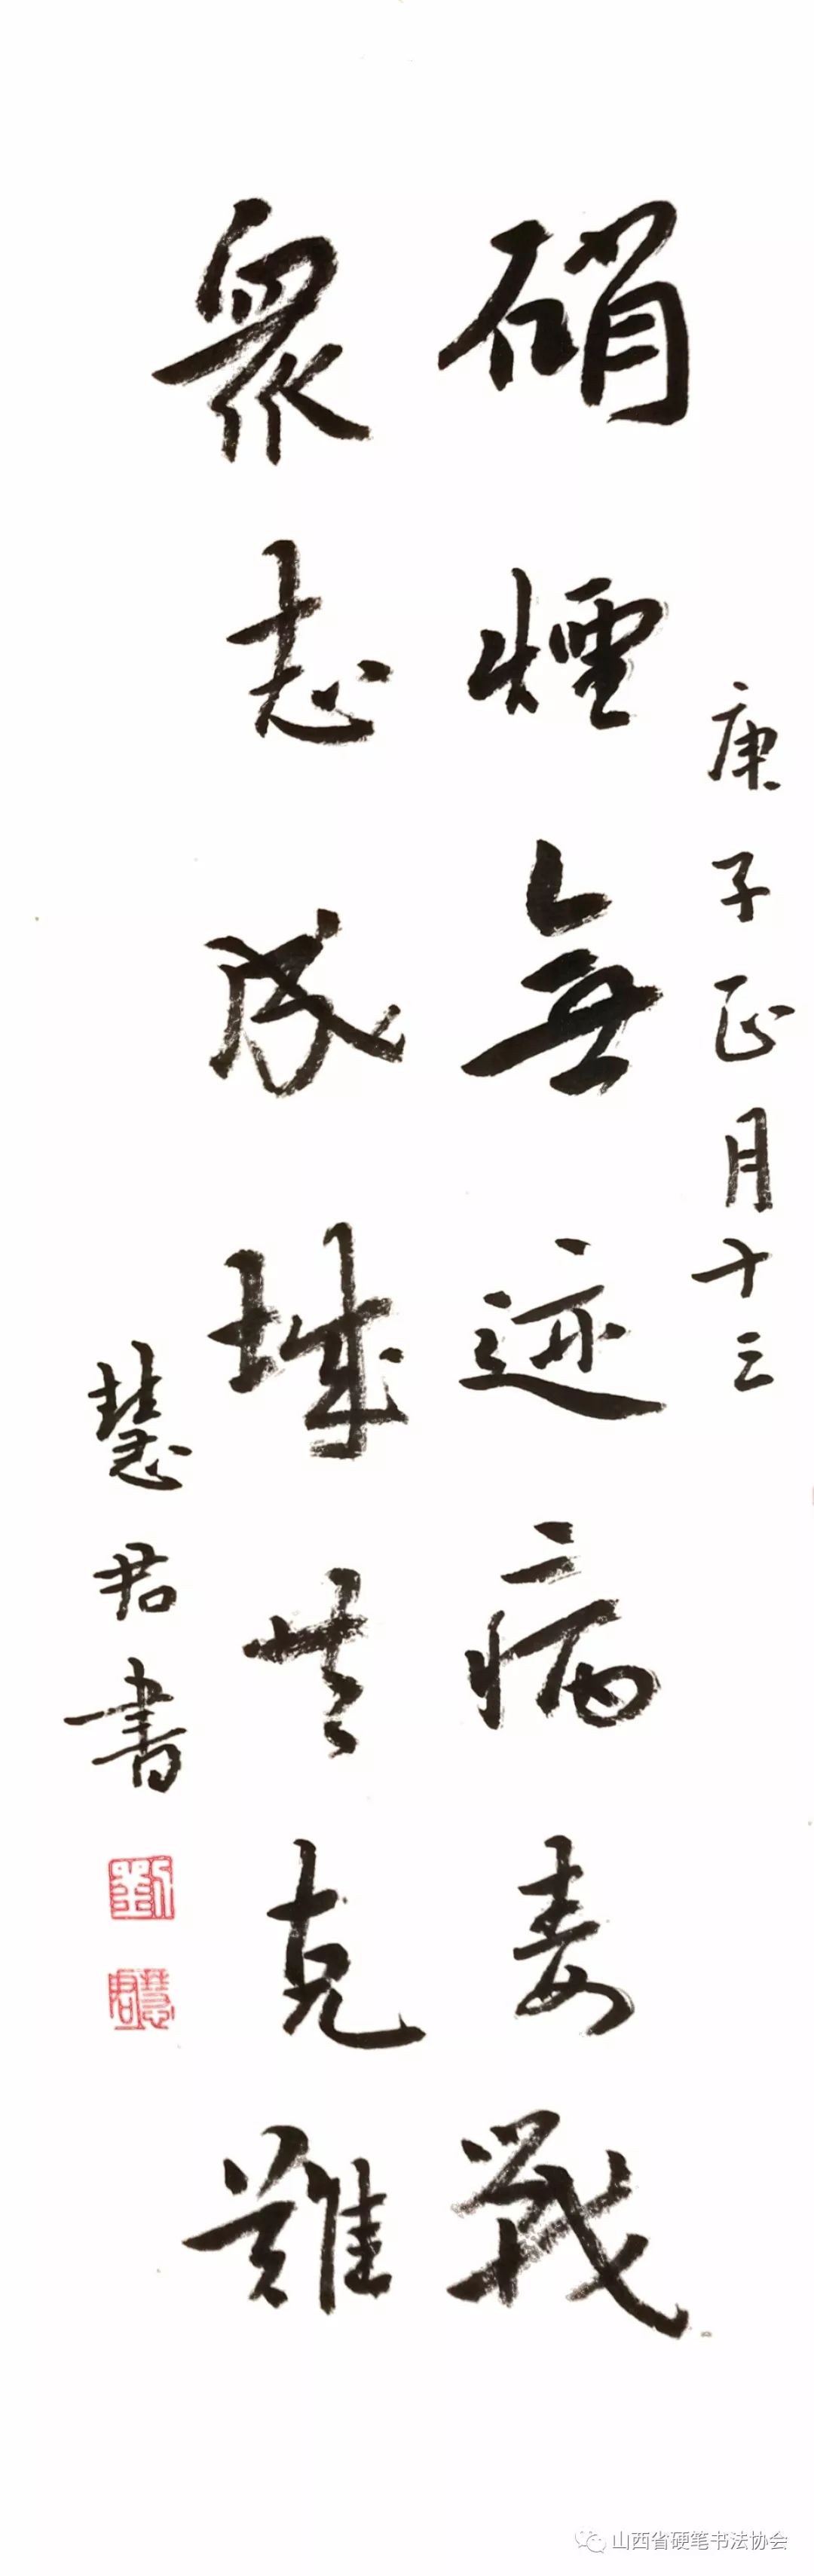 庚子正月十三
硝煙無迹病毒戰
衆志成城共克難
慧君書
劉
慧君
山西省硬笔书法协会